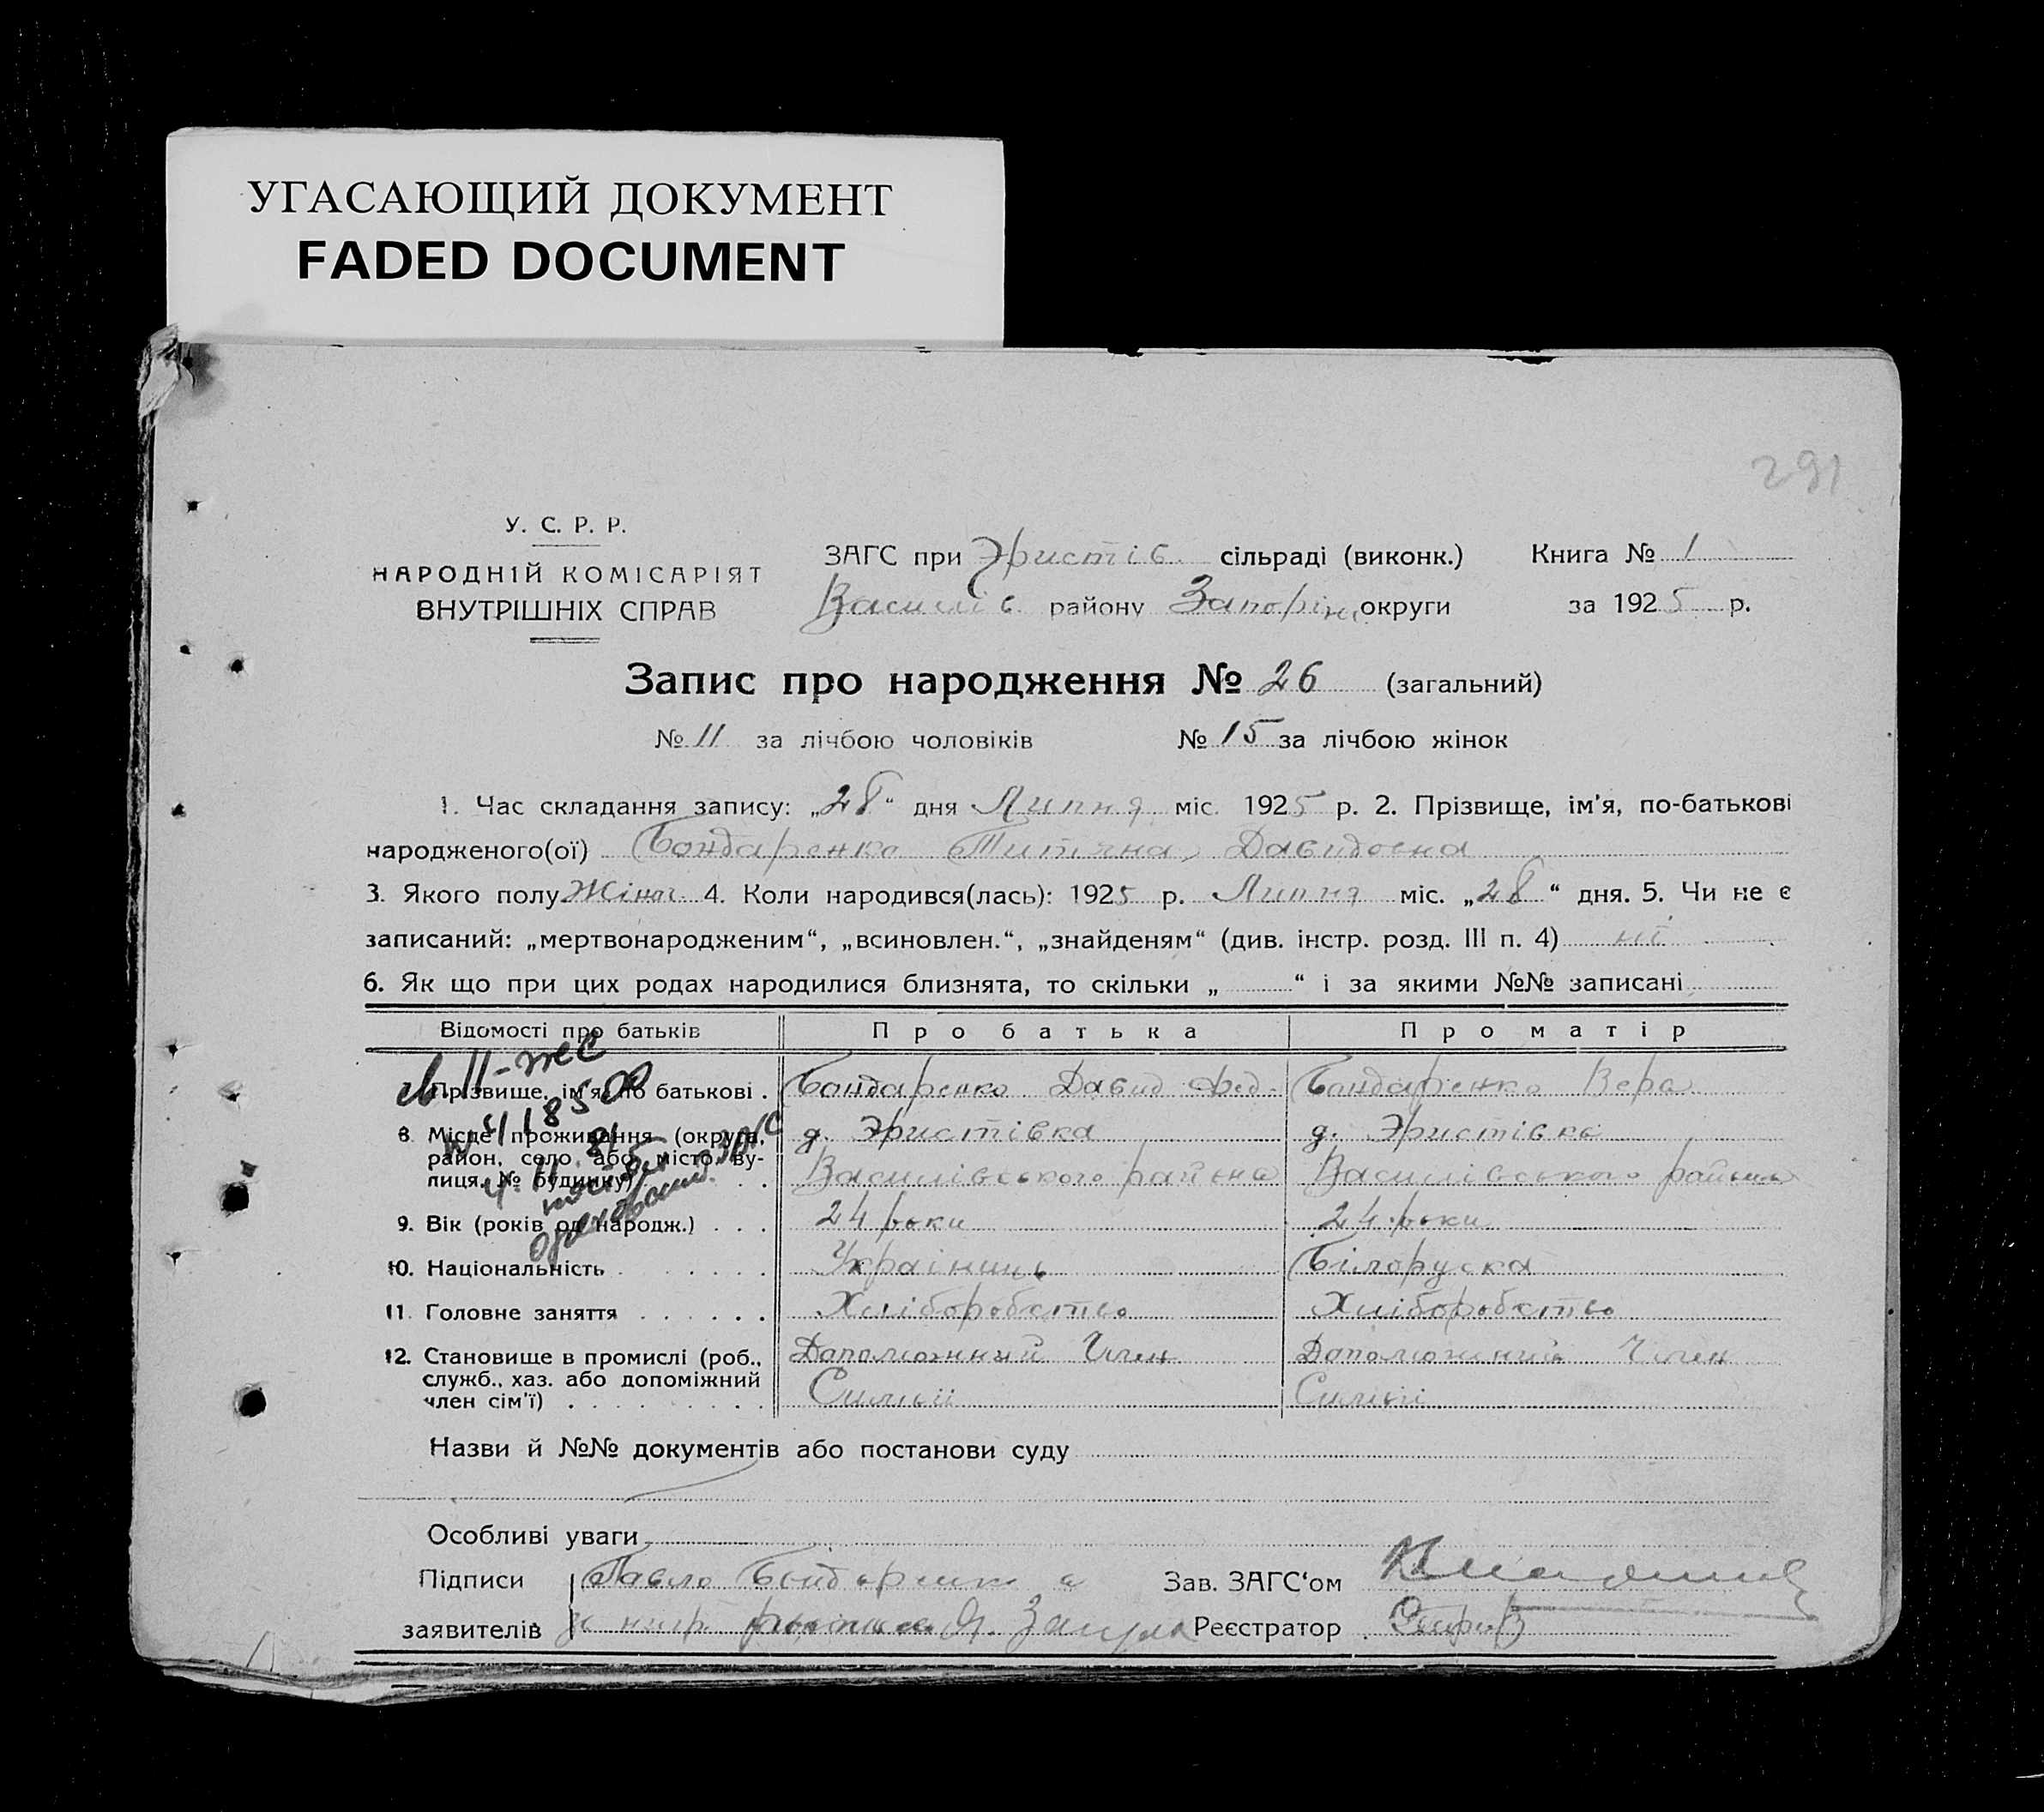 УГАСАЮЩИЙ ДОКУМЕНТ
FADED DOCUMENT
291
У. С. Р. Р.
НАРОДНІЙ КОМІСАРІЯТ
ВНУТРІШНІХ СПРАВ
ЗАГС при Эристів. сільраді (виконк.) Книга № 1
Василів району Запоріж. округи за 1925 р.
Запис про народження № 26 (загальний)
№ 11 за лічбою чоловіків № 15 за лічбою жінок
1. Час складання запису: „28“ дня Липня міс. 1925 р. 2. Прізвище, ім'я, по-батькові
народженого(ої) Бондаренко Давидовна
3. Якого полу Жіноч. 4. Коли народився(лась): 1925 р. Липня міс. „28“ дня. 5. Чи не є
записаний: „мертвонародженим“, „всиновлен.“, „знайденям“ (див. інстр. розд. III п. 4) ні
6. Як що при цих родах народилися близнята, то скільки „ “ і за якими №№ записані
Відомості про батьків Про батька Про матір
Прізвище, ім'я, по батькові . Бондаренко Давид Фед. Бондаренко Вера
8. Місце проживання (округа, д. Эристівка д. Эристівка
район, село або місто, вулиця, № будинку) Василівського района Василівського района
9. Вік (років од народж.) . . . 24 роки 24 роки
10. Національність Україниць Білоруска
11. Головне заняття Хліборобство Хліборобство
12. Становище в промислі (роб., Дапоможний Член Дапоможний Член
служб., хаз. або допоміжний
член сім'ї) Симьи Симьи
Назви й №№ документів або постанови суду
Особливі уваги
Підписи Павло Бондаренко Зав. ЗАГС'ом
заявителів Реєстратор